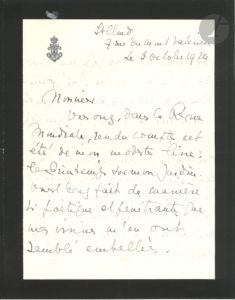 St Cloud
7 rue du mont Valérien
Le 3 octobre 1924
Monsieur
Vous avez, dans la Revue
Mondiale, rendu compte cet
été de mon modeste livre :
le Printemps sur mon Jardin
Vous l'avez fait de manière
si poétique et pénétrante que
mes visions m'en ont
semblé embellies.